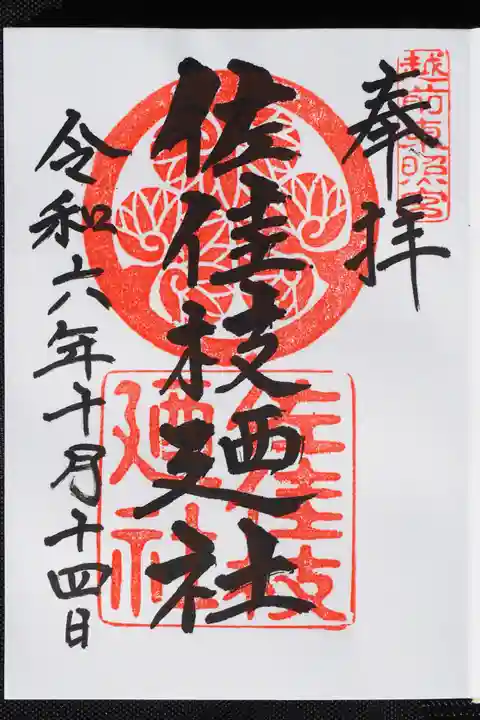 越前東照宮
奉拝
佐佳枝廼社
佐佳枝
廼社
令和六年十月十四日